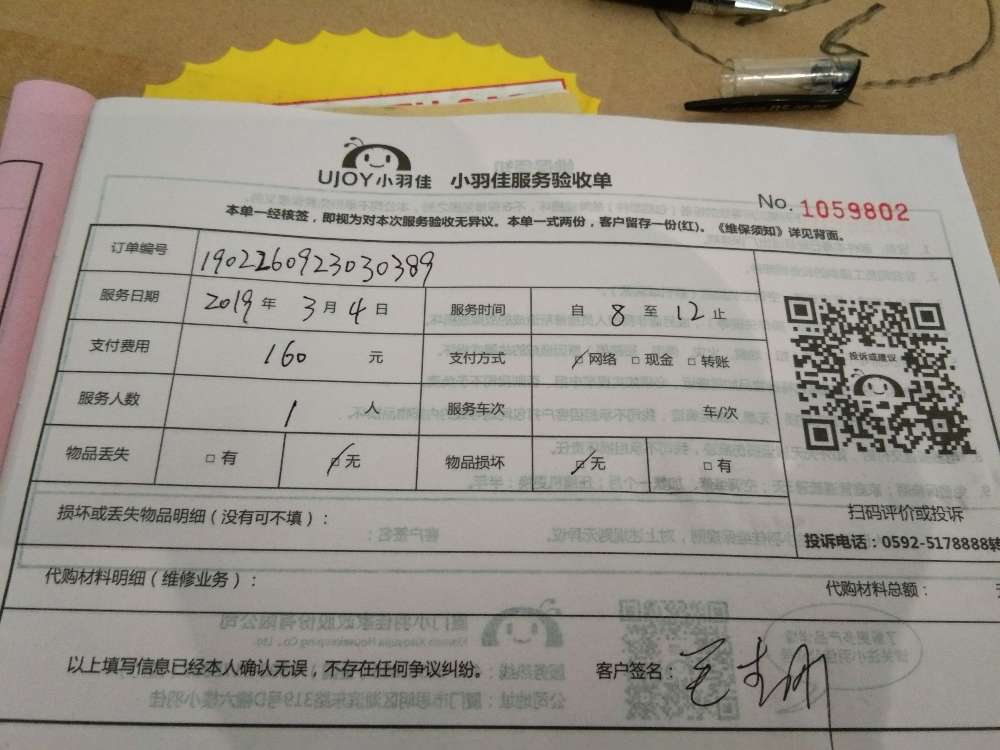 UJOY小羽佳 小羽佳服务验收单
No. 1059802
本单一经核签，即视为对本次服务验收无异议。本单一式两份，客户留存一份(红)。《维保须知》详见背面。
订单编号 1902260923030389
服务日期 2019 年 3 月 4 日 服务时间 自 8 至 12 止
支付费用 160 元 支付方式 ☑网络 □现金 □转账
服务人数 1 人 服务车次 车/次
物品丢失 □有 ☑无 物品损坏 ☑无 □有
投诉或建议
扫码评价或投诉
投诉电话：0592-5178888转
损坏或丢失物品明细（没有可不填）：
代购材料明细（维修业务）： 代购材料总额：
以上填写信息已经本人确认无误，不存在任何争议纠纷。 客户签名：